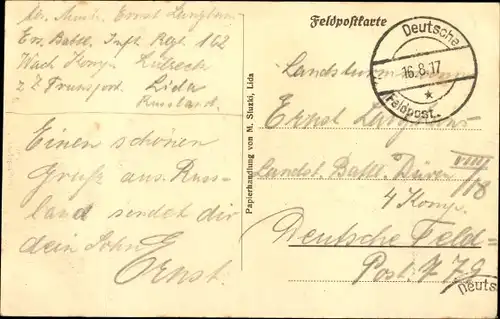 Ernst
Ers. Batl. Inft. Regt. 162
Wach Komp. Lübeck
z Z Transport. Lida
Russland.
Einen schönen
Gruß aus Russ-
land sendet dir
dein Sohn
Ernst.
Papierhandlung von M. Sluzki, Lida
Feldpostkarte
Deutsche
16.8.17
*
Feldpost.
Landsturmmann
Ernst
Landst. Batl. Düren VIII/18
4 Komp.
Deutsche Feld-
Post.
Deuts